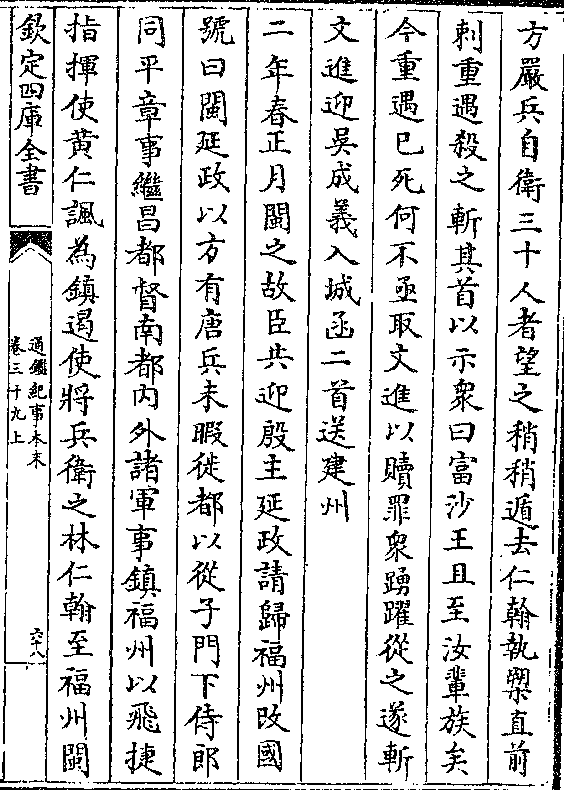 方嚴兵自衛三十人者望之稍稍遁去仁翰執槊直前
刺重遇殺之斬其首以示衆曰富沙王且至汝輩族矣
今重遇已死何不亟取文進以贖罪衆踴躍從之遂斬
文進迎吳成義入城函二首送建州
二年春正月閩之故臣共迎殷主延政請歸福州改國
號曰閩延政以方有唐兵未暇徙都以從子門下侍郎
同平章事繼昌都督南都內外諸軍事鎮福州以飛捷
指揮使黃仁諷為鎮遏使將兵衛之林仁翰至福州閩
欽定四庫全書
通鑑紀事本末
卷三十九上
六十八